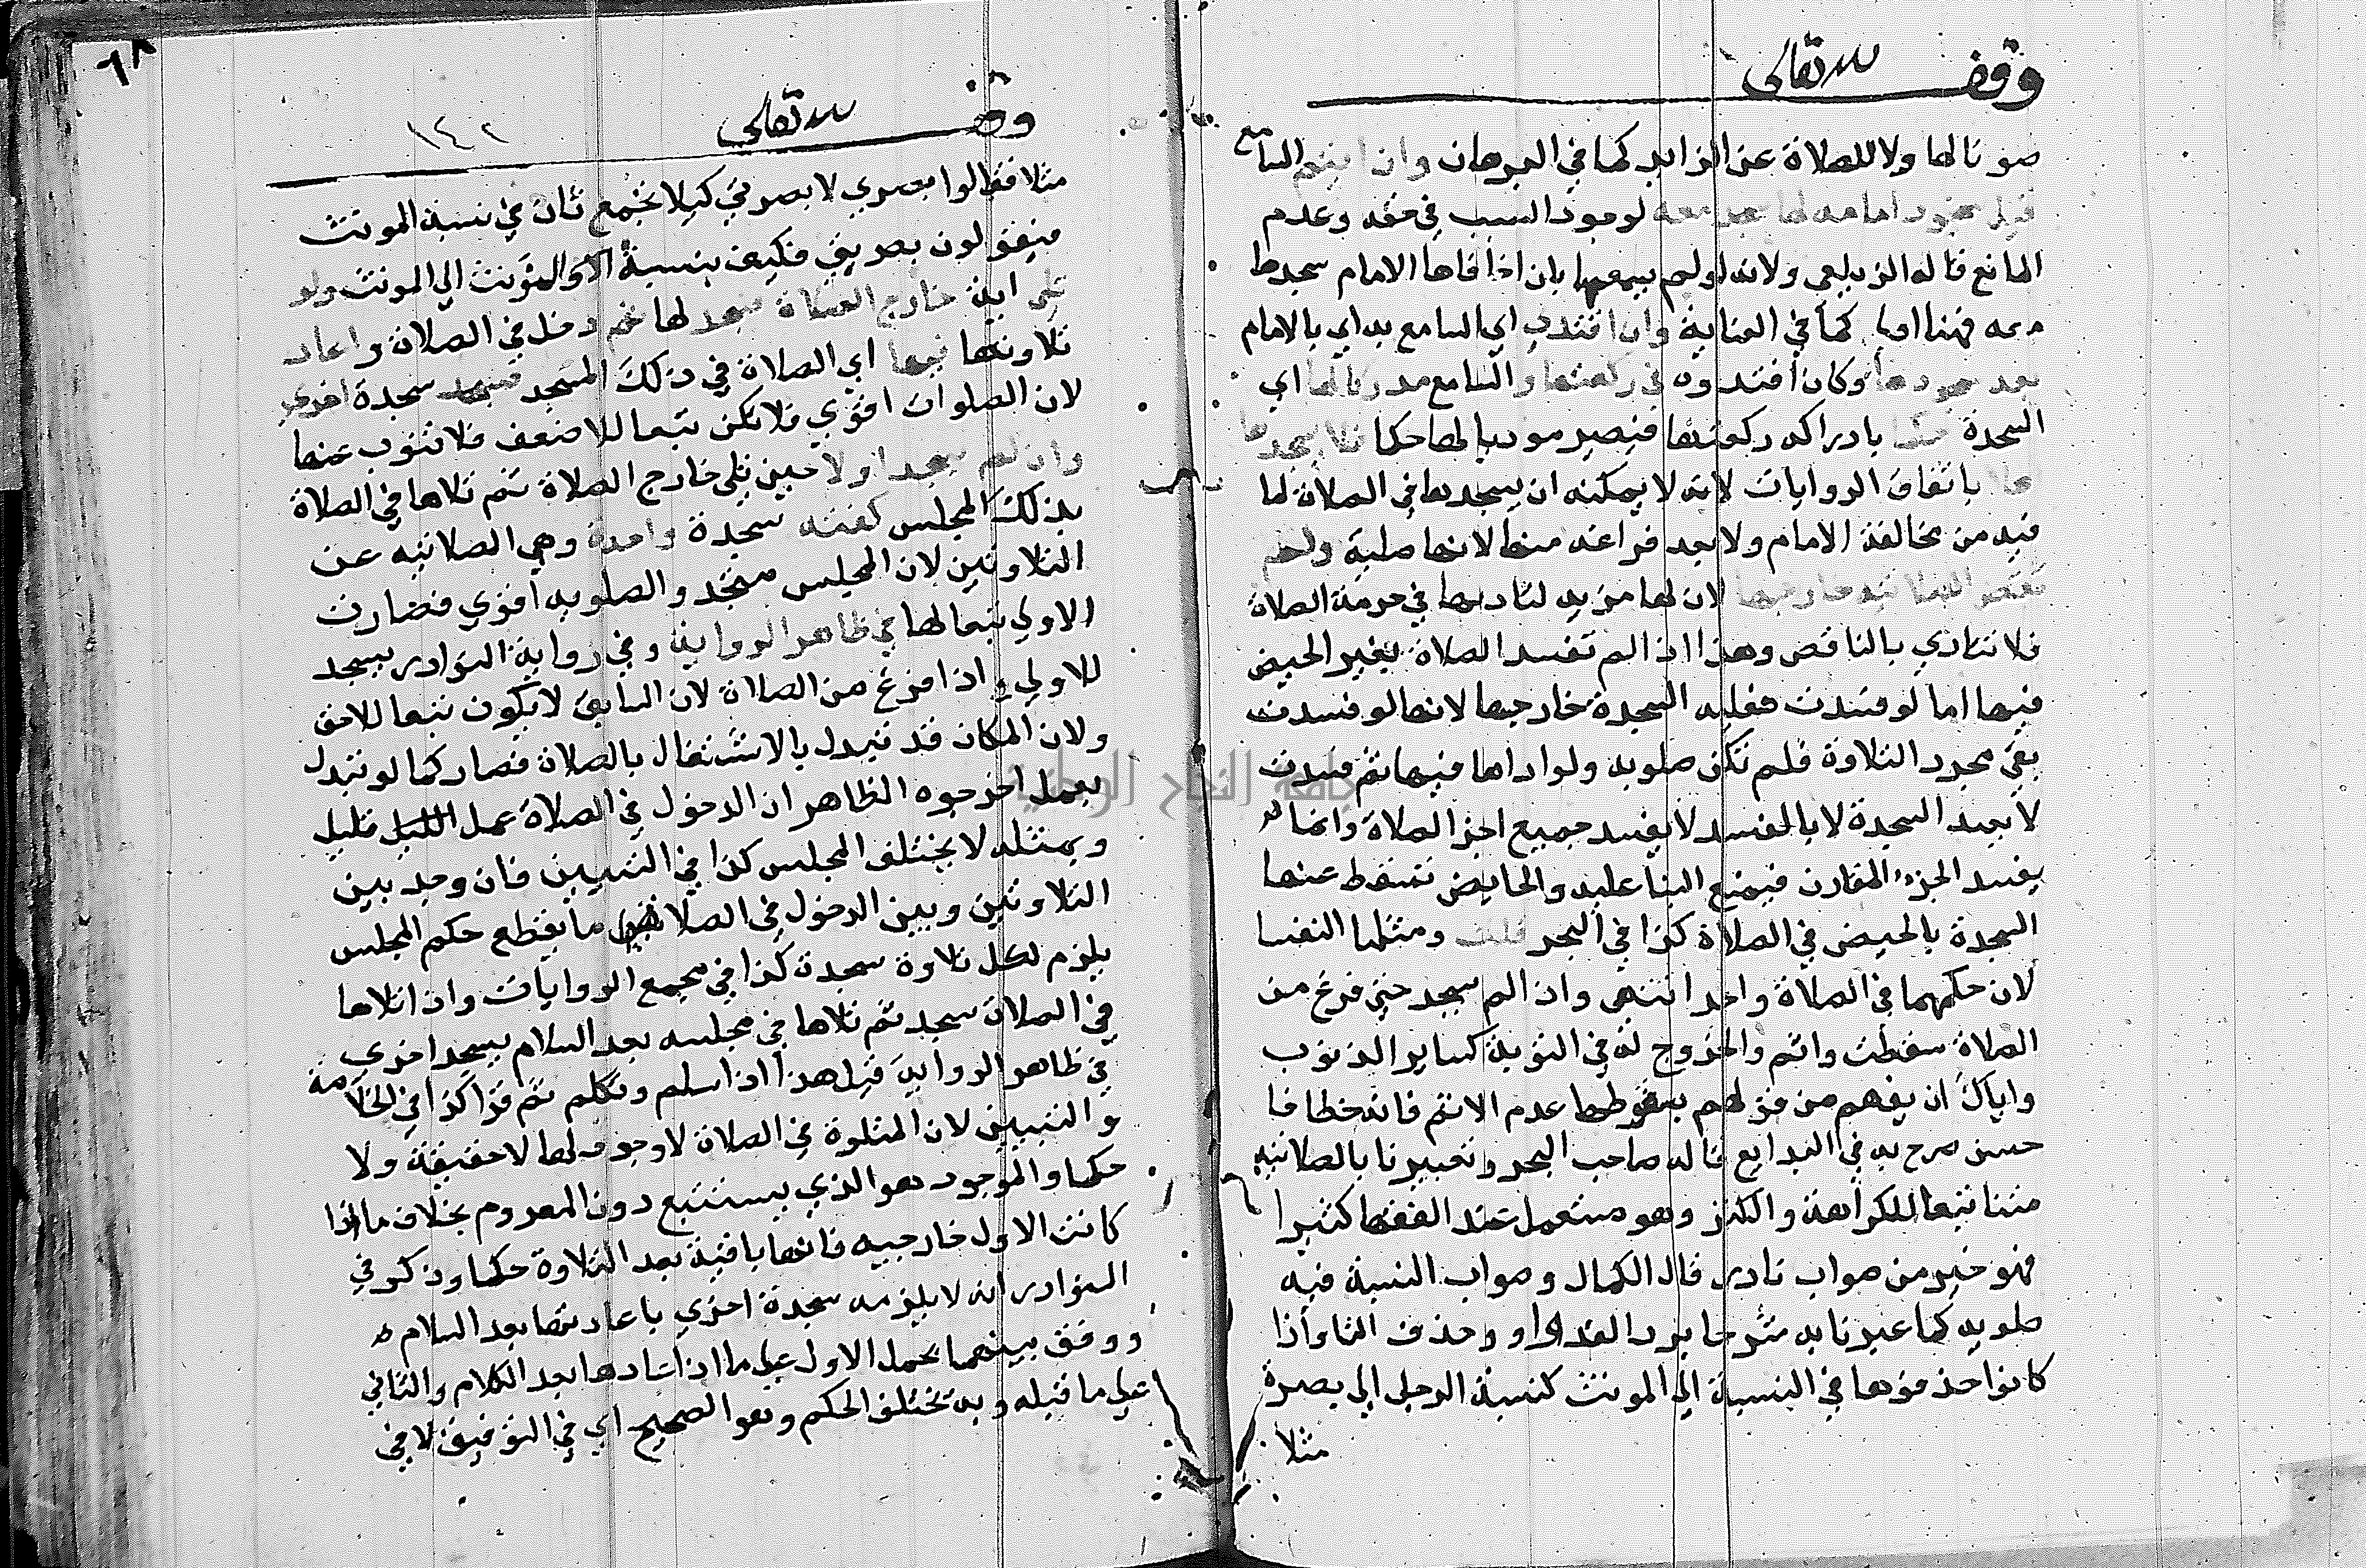 وقف لله تعالى
صونا لها ولا للصلاة عن الزايد كما في البرهان وان ايتم السامع
قبل سجود امامه لها سجد معه لوجود السبب في حقه وعدم
المانع قاله الزيلعي ولانه لو لم يسمعها بان اخافاها الامام سجدها
معه فهنا اولى كما في العناية وان اقتدى اي السامع به اي بالامام
بعد سجودها وكان اقتداوه في ركعتها والسامع مدركا لها اي
السجدة حكما بادراكه ركعتها فيصير موديا لها حكما فلا يسجدها
باتفاق الروايات لانه لا يمكنه ان يسجدها في الصلاة لما
فيه من مخالفة الامام ولا بعد فراغه منها لانها صلبية ولم
تقض الصلاتيه خارجها لان لها مزيه لتاديها في حرمة الصلاة
فلا تتادي بالناقص وهذا اذا لم تفسد الصلاة بغير الحيض
فيها اما لو فسدت فعليه السجدة خارجها لانها لو فسدت
بقي مجرد التلاوة فلم تكن صلويه ولو اداها فيها ثم فسدت
لا يعيد السجدة لا بالمفسد لا يفسد جميع اجزا الصلاة وانما
يفسد الجزء المقارن فيمتنع البنا عليه والحايض تسقط عنها
السجدة بالحيض في الصلاة كذا في البحر قلت ومثلها النفسا
لان حكمهما في الصلاة واحد انتهى واذا لم يسجد حتى فرغ من
الصلاة سقطت واثم والخروج له في التوبة كساير الذنوب
واياك ان يفهم من قولهم بسقوطها عدم الاثم فانه خطا فا
حسن صرح به في البدايع قاله صاحب البحر وتعبيرنا بالصلاتيه
متنا تبعا للكراهة والكنز وهو مستعمل عند الفقها كثيرا
فهو خير من صواب نادر قال الكمال وصواب النسبة فيه
صلويه كما عبرنا به شرحا برد الفه واوا وحذف التا واذا
كانوا حذفوها في النسبة الى المونث كنسبة الرجل الى بصرة
مثلا
٦٨
وقف لله تعالى
١٤٢
مثلا فقالوا بصري لا بصرتي كيلا تجتمع تاان في نسبة المونث
فيقولون بصريتي فكيف بنسبة المونث الي المونث ولو
تلى اية خارج الصلاة فسجد لها ثم دخل في الصلاة واعاد
تلاوتها فيها اي الصلاة في ذلك المسجد فسجد سجدة اخرى
لان الصلوات اقوي فلا تكن تبعا للاضعف فلا تنوب عنها
وان لم يسجد اولا حين تلى خارج الصلاة ثم تلاها في الصلاة
بذلك المجلس كفته سجدة واحدة وهي الصلاتيه عن
التلاوتين لان المجلس متحد والصلويه اقوي فصارت
الاولى تبعا لها في ظاهر الرواية وفي رواية النوادر يسجد
للاولي اذا فرغ من الصلاة لان السابق لا يكون تبعا للاحق
ولان المكان قد تبدل بالاشتغال بالصلاة فصار كما لو تبدل
بعمل اخر وجوه الظاهر ان الدخول في الصلاة عمل قليل
وبمثله لا يختلف المجلس كذا في التبيين فان وجد بين
التلاوتين وبين الدخول في الصلاة ما يقطع حكم المجلس
يلزم لكل تلاوة سجدة كذا في مجمع الروايات واذا تلاها
في الصلاة سجد ثم تلاها في مجلسه بعد السلام يسجد اخرى
في ظاهر الرواية قيل هذا اذا سلم وتكلم ثم قرا كذا في الخلاصة
والتبيين لان المتلوة في الصلاة لا وجود لها لا حقيقة ولا
حكما والموجود هو الذي يستتبع دون المعدوم بخلاف ما اذا
كانت الاولى خارجيه فانها باقية بعد التلاوة حكما وذكر في
النوادر انه لا يلزمه سجدة اخرى باعادتها بعد السلام
ووفق بينهما بحمل الاول على ما اذا اعادها بعد الكلام والثاني
على ما قبله وبه تختلف الحكم وهو الصحيح اي في التوفيق لا في
جامعة النجاح الوطنية